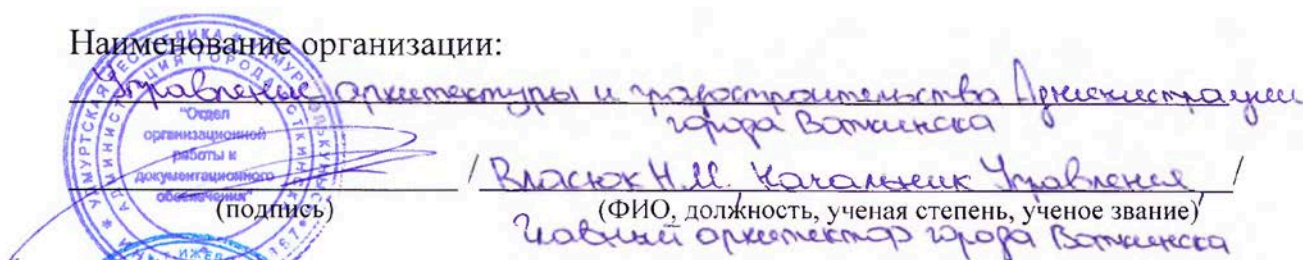 Наименование организации:
Управление архитектуры и градостроительства Администрации
города Воткинска
"Отдел
организационной
работы и
документационного
обеспечения"
/ Власюк Н.М. Начальник Управления /
(подпись) (ФИО, должность, ученая степень, ученое звание)
Главный архитектор города Воткинска